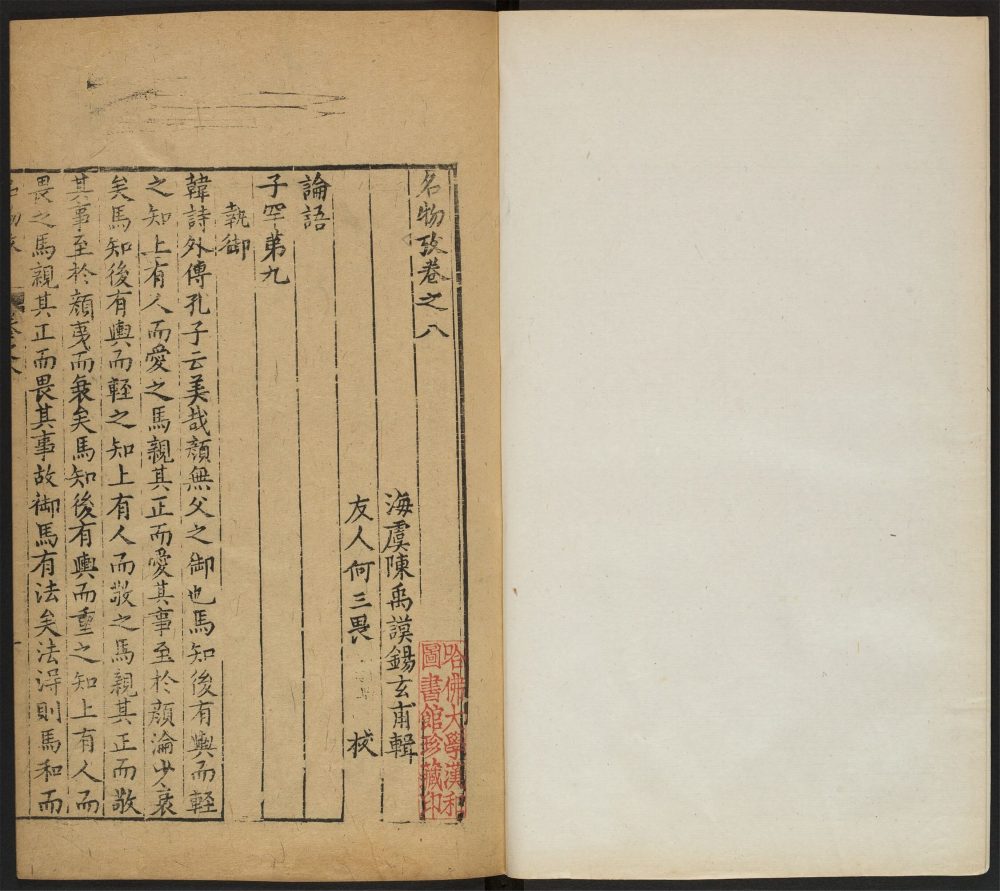 名物攷卷之八
海虞陳禹謨錫玄甫輯
友人何三畏 校
論語
子罕第九
執御
韓詩外傳孔子云美哉顏無父之御也馬知後有輿而輕
之知上有人而愛之馬親其正而愛其事至於顏淪少衰
矣馬知後有輿而輕之知上有人而敬之馬親其正而敬
其事至於顏夷而衰矣馬知後有輿而重之知上有人而
畏之馬親其正而畏其事故御馬有法矣法淂則馬和而
哈佛大學漢和
圖書館珍藏印